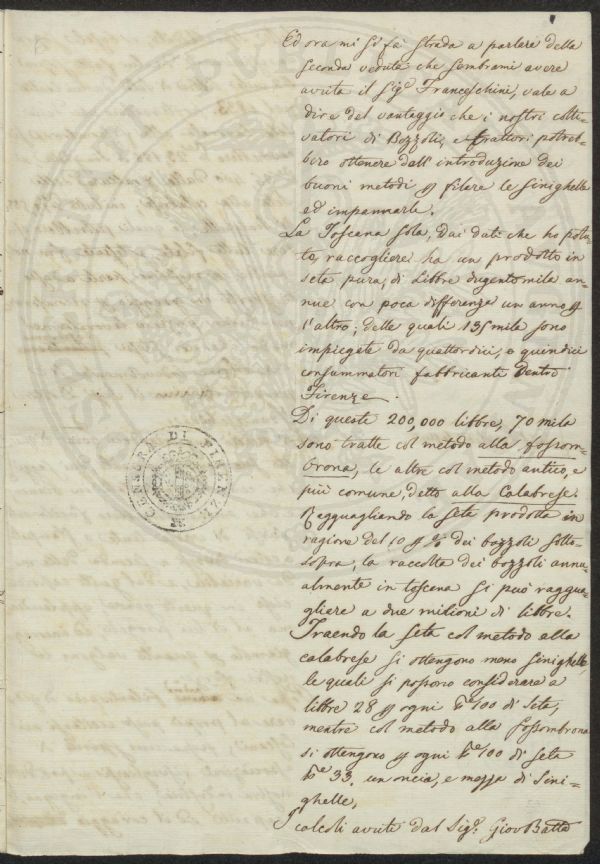 Ed ora mi si fa strada a parlare della
seconda veduta che sembrami avere
avuta il Sig.e Franceschini, vale a
dire del vantaggio che i nostri colti-
vatori di Bozzoli, e trattori potreb-
bero ottenere dall' introduzione dei
buoni metodi p filare le Sinighelle
ed impannarle.
La Toscana sola, dai dati che ho potu-
to raccogliere ha un prodotto in
seta pura, di Libbre dugentomila an-
nue con poca differenza un anno p
l'altro; delle quali 135 mila sono
impiegate da quattordici, o quindici
consummatori fabbricanti dentro
Firenze.
Di queste 200,000 libbre, 70 mila
sono tratte col metodo alla fossom-
brona, le altre col metodo antico, e
più comune, detto alla Calabrese.
Ragguagliando la seta prodotta in
ragione del 10 p % dei bozzoli sotto-
sopra, la raccolta dei bozzoli annu-
almente in toscana si può raggua-
gliare a due milioni di libbre.
Traendo la seta col metodo alla
calabrese si ottengono meno sinighelle,
le quali si possono considerare a
libbre 28 p ogni 100 di seta,
mentre col metodo alla fossombrona
si ottengono p ogni 100 di seta
33. un oncia, e mezza di Sini-
ghelle.
I calcoli avuti dal Sig.r Giov Batta
CENSURA DI FIRENZE